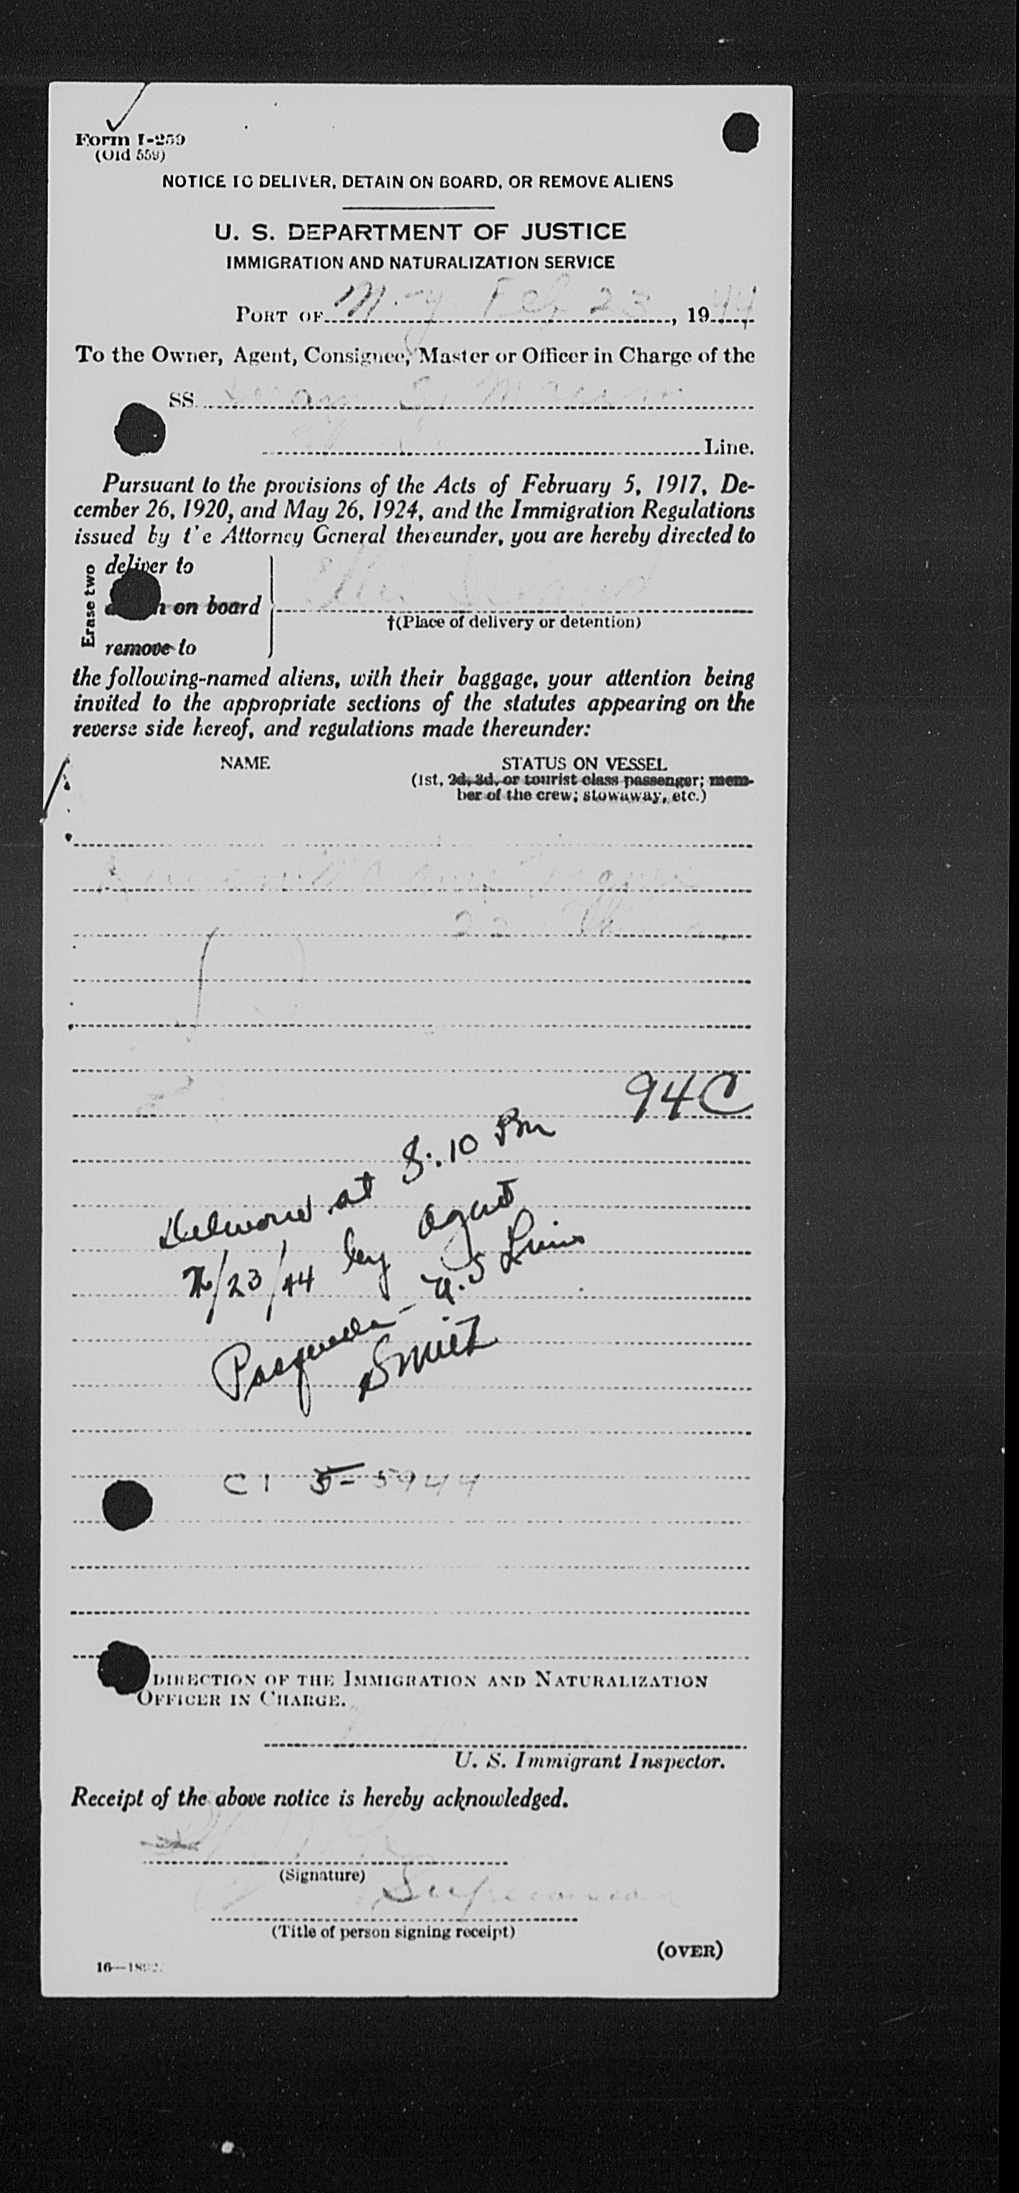 Form I-259
(Old 559)
NOTICE TO DELIVER, DETAIN ON BOARD, OR REMOVE ALIENS
U. S. DEPARTMENT OF JUSTICE
IMMIGRATION AND NATURALIZATION SERVICE
PORT OF N.Y. Feb 23, 1944
To the Owner, Agent, Consignee, Master or Officer in Charge of the
SS.
Line.
Pursuant to the provisions of the Acts of February 5, 1917, De-
cember 26, 1920, and May 26, 1924, and the Immigration Regulations
issued by t'e Attorney General thereunder, you are hereby directed to
Erase two
deliver to
on board
Ellis Island
†(Place of delivery or detention)
remove to
the following-named aliens, with their baggage, your attention being
invited to the appropriate sections of the statutes appearing on the
reverse side hereof, and regulations made thereunder:
NAME STATUS ON VESSEL
(1st, 2d, 3d, or tourist class passenger; mem-
ber of the crew; stowaway, etc.)
94C
at 8:10 Pm
2/23/44 by agent
U.S Lines
Smith
C1 5-5944
DIRECTION OF THE IMMIGRATION AND NATURALIZATION
OFFICER IN CHARGE.
U. S. Immigrant Inspector.
Receipt of the above notice is hereby acknowledged.
(Signature)
(Title of person signing receipt)
(OVER)